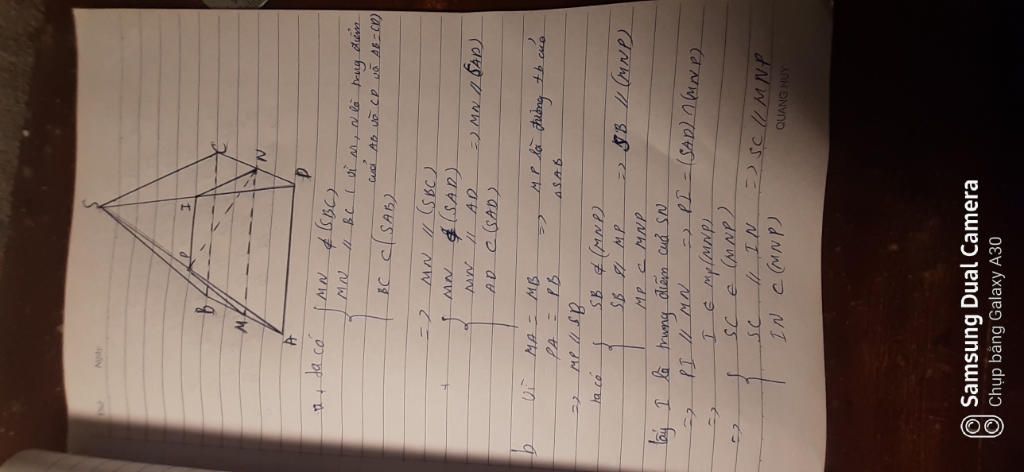 S
I
C
P
N
B
M
D
A
a, ta có { MN ⊄ (SBC)
MN // BC ( vì M, N là trung điểm
của AB và CD và AB = CD)
BC ⊂ (SAB)
=> MN // (SBC)
+ { MN ⊄ (SAD)
MN // AD => MN // (SAD)
AD ⊂ (SAD)
b Vì MA = MB
PA = PB => MP là đường tb của
ΔSAB
=> MP // SB
ta có { SB ⊄ (MNP)
SB // MP => SB // (MNP)
MP ⊂ MNP
lấy I là trung điểm của SN
=> PI // MN => PI = (SAD) ∩ (MNP)
=> I ∈ mp(MNP)
=> { SC ∈ (MNP)
SC // IN => SC // MNP
IN ⊂ (MNP)
QUANG HUY
Samsung Dual Camera
Chụp bằng Galaxy A30